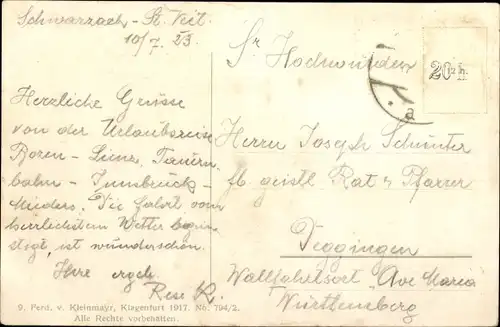 Schwarzach - St. Veit
10/7. 23.
Herzliche Grüsse
von der Urlaubsreise
Bozen - Lienz, Tauern-
bahn - Innsbruck -
Mieders. Die Fahrt vom
herrlichsten Wetter begün-
stigt, ist wunderschön.
Ihre ergeb.
Rese K.
9. Ferd. v. Kleinmayr, Klagenfurt 1917. No. 794/2.
Alle Rechte vorbehalten.
Sr Hochwürden
Herrn Joseph
fb. geistl. Rat & Pfarrer
Deggingen
Wallfahrtsort "Ave Maria
Württemberg
20 h
a